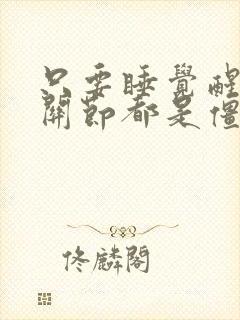 只要睡覺醒
關節都是僵
佟麟閣